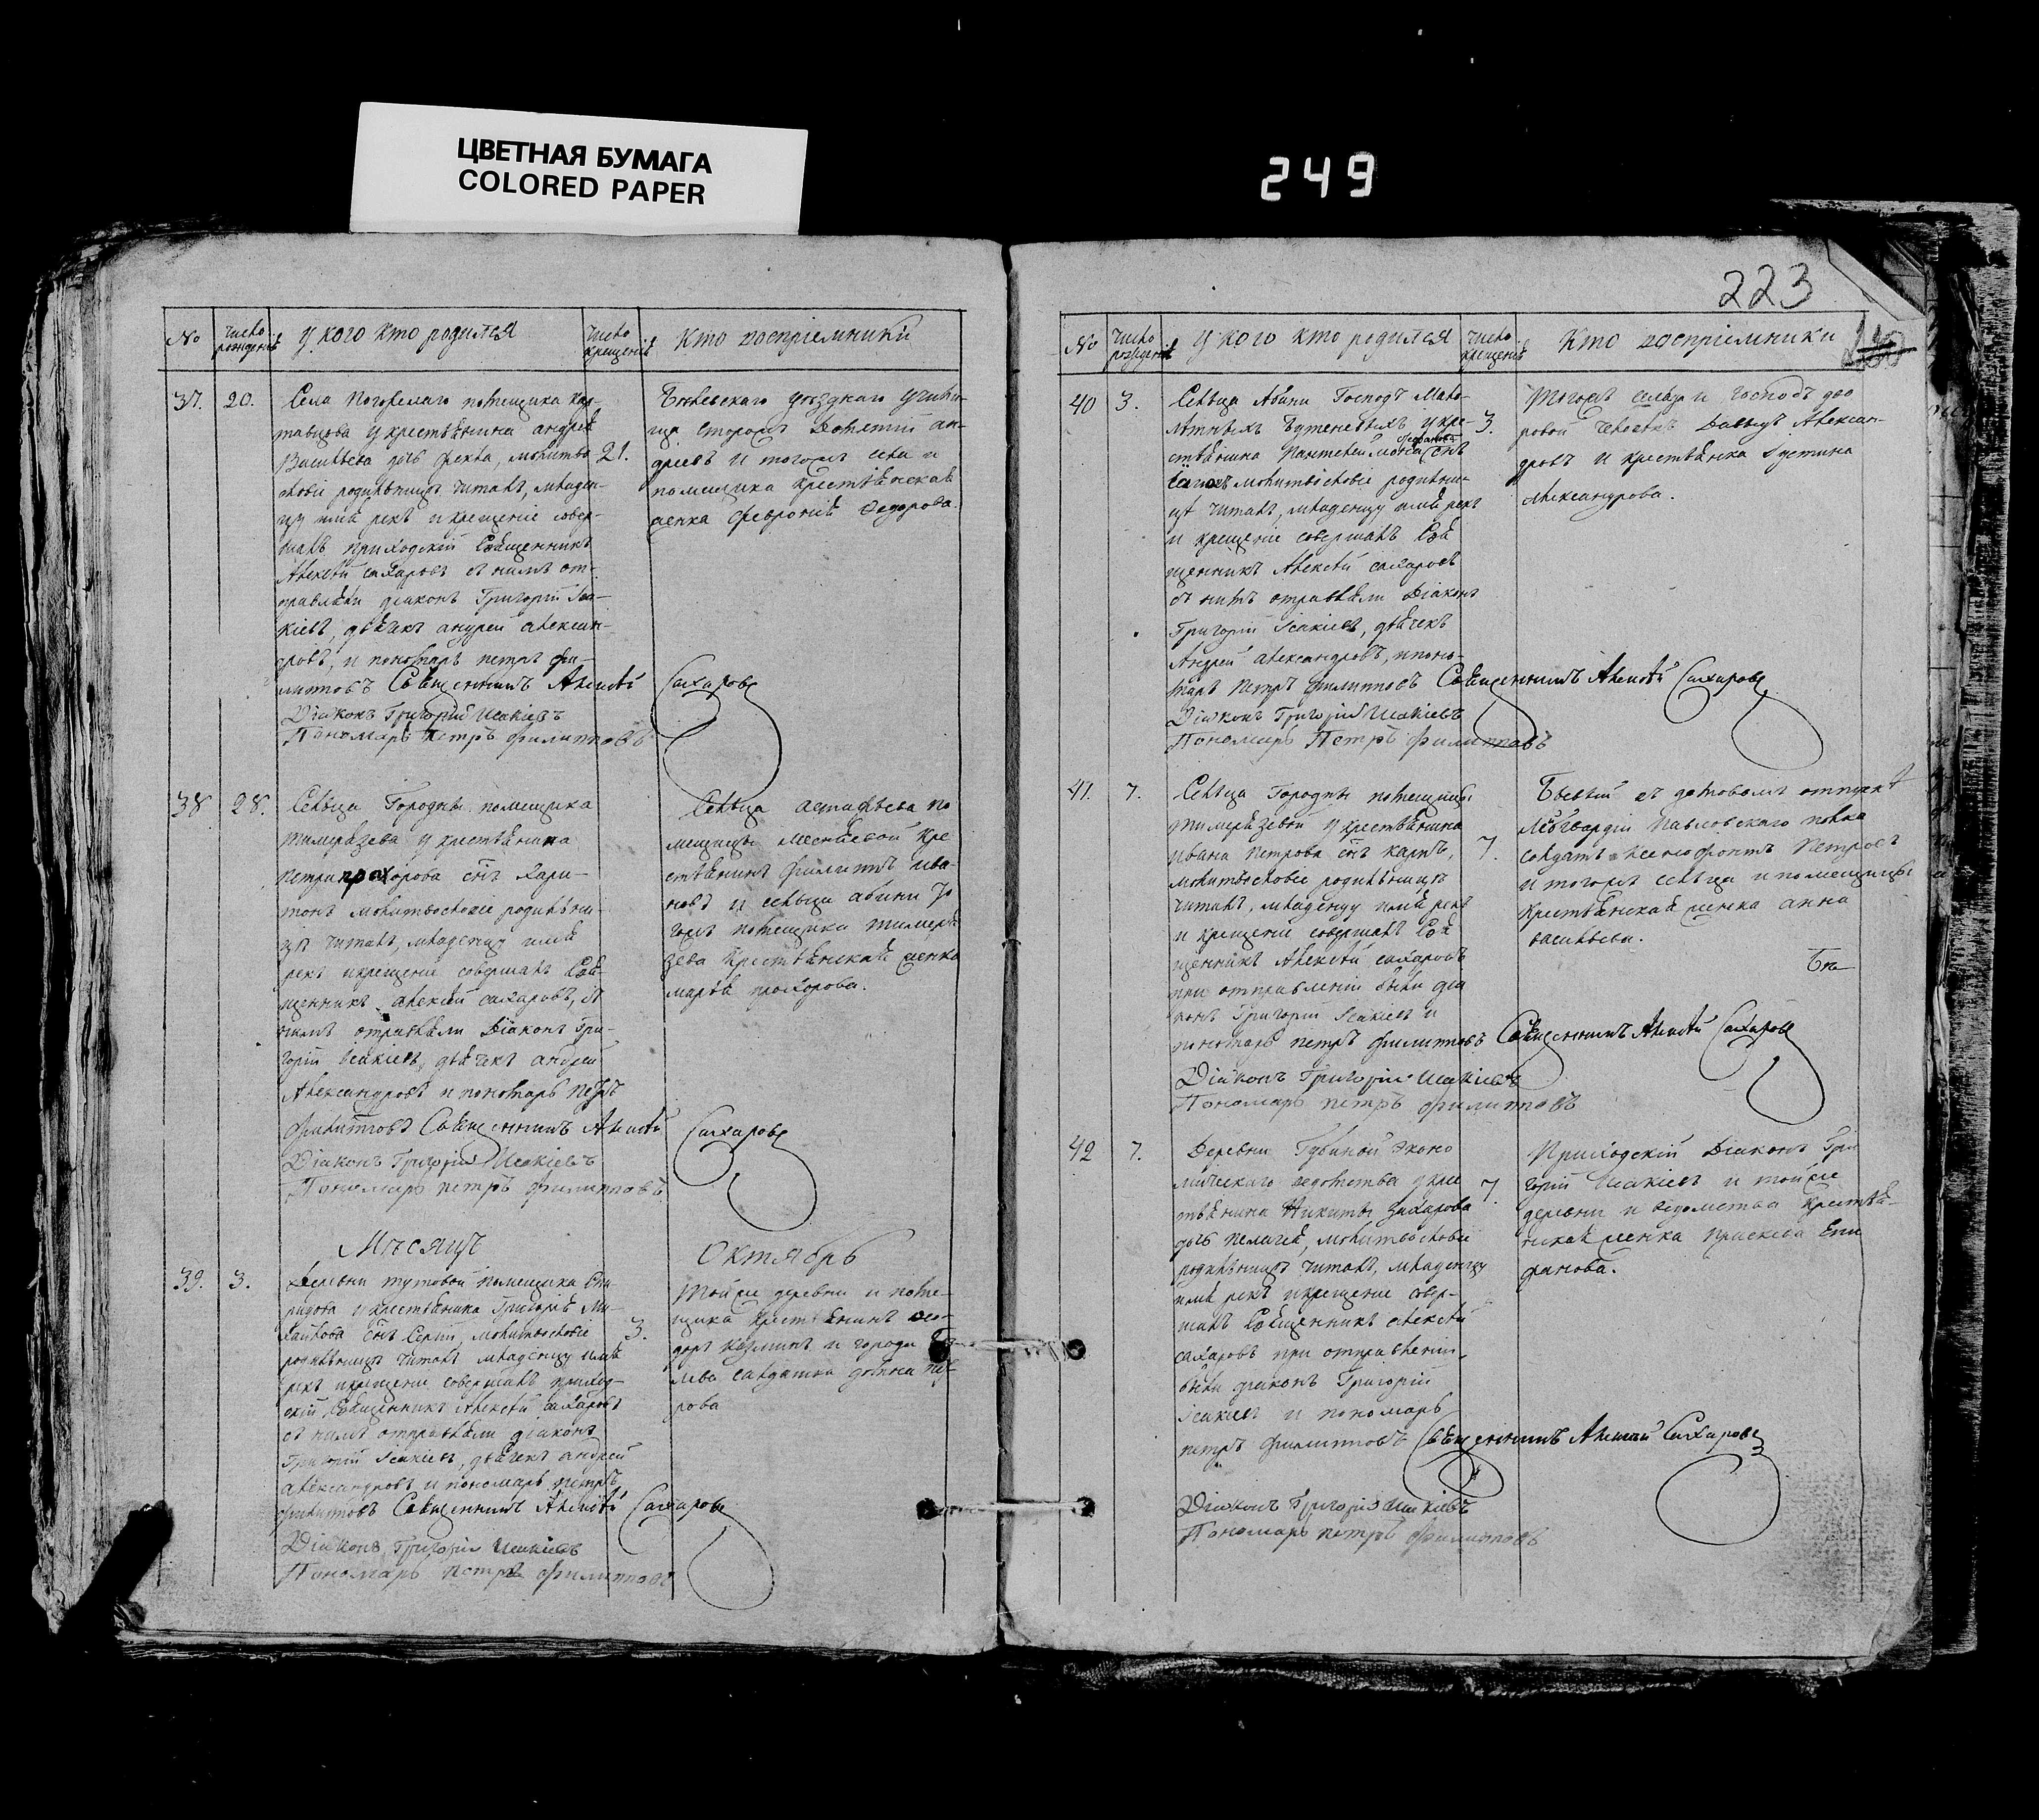 ЦВЕТНАЯ БУМАГА
COLORED PAPER
249
223
№ число рожденія У кого кто родился число крещенія Кто воспріемники
37. 20. 21.
Села Погорелаго помещика
у крестьянина андрея
Васильева дочь Фекла, молитво
словіе родильнице читалъ, младен-
цу имя рекъ и крещеніе совер-
шалъ приходскій Священникъ
Алексѣй сахаровъ съ нимъ от-
правляли діаконъ Григорій Іса-
кіевъ, дьячекъ андрей алексан-
дровъ, и пономарь петръ фи-
липповъ Священникъ Алексѣй Сахаровъ
Діаконъ Григорій Исакіевъ
Пономарь петръ филипповъ
Бѣлевскаго уѣзднаго учили-
ща сторожъ ан-
дреевъ и тогожъ села и
помещика крестьянская
женка Февронія Федорова.
38 28.
Сельца Городни помещика
тимерязева у крестьянина
петра прохорова сынъ Хари-
тонъ молитвословіе родильни-
цѣ читалъ, младенцу имя
рекъ и крещеніе совершалъ Свя-
щенникъ алексѣй сахаровъ, съ
нимъ отправляли Діаконъ Гри-
горій Исакіевъ, дьячекъ андрей
Александровъ и пономарь петръ
филипповъ Священникъ Алексѣй Сахаровъ
Діаконъ Григорій Исакіевъ
Пономарь петръ филипповъ
Сельца астафьева по
мещицы кре
стьянинъ филиппъ ива-
новъ и сельца абини
помещика тимеря
зева крестьянская женка
марфа прохорова.
Мѣсяцъ Октябрь
39. 3. 3.
Деревни помещика Спи
ридова у крестьянина Григорья Ми-
хайлова сынъ Сергій, молитвословіе
родильнице читалъ младенцу имя
рекъ и крещеніе совершалъ приход-
скій Священникъ Алексѣй сахаровъ
съ нимъ отправляли діаконъ
Григорій Исакіевъ, дьячекъ андрей
александровъ и пономарь петръ
филипповъ Священникъ Алексѣй Сахаровъ
Діаконъ Григорій Исакіевъ
Пономарь петръ филипповъ
Тойже деревни и поме-
щика крестьянинъ фео-
доръ козминъ и города Бе-
лева салдатка домна
рова
№ число рожденія У кого кто родился число крещенія Кто воспріемники
40 3. 3.
Сельца Абини Господъ Мало-
лѣтныхъ Бутеневыхъ у кре-
стьянина Пантелеймона сынъ
молитвословіе родильни-
це читалъ, младенцу имя рекъ
и крещеніе совершалъ Свя
щенникъ Алексѣй сахаровъ
съ нимъ отправляли Діаконъ
Григорій Ісакіевъ, дьячекъ
Андрей александровъ, и поно-
марь петръ филипповъ Священникъ Алексѣй Сахаровъ
Діаконъ Григорій Исакіевъ
Пономарь Петръ филипповъ
Тогожъ сельца и господъ дво
ровой человекъ Давыдъ Алексан-
дровъ и крестьянка Устина
Александрова.
41. 7. 7.
Сельца Городни помещицы
тимерязевой у крестьянина
ивана петрова сынъ карпъ,
молитвословіе родильнице
читалъ, младенцу имя рекъ
и крещеніе совершалъ Свя
щенникъ Алексѣй сахаровъ
при отправленіи были діа
конъ Григорій Ісакіевъ и
пономарь петръ филипповъ Священникъ Алексѣй Сахаровъ
Діаконъ Григорій Исакіевъ
Пономарь петръ филипповъ
отпуске
Лебгвардіи Павловскаго полка
солдатъ Ксенофонтъ Петровъ
и тогожъ сельца и помещицы
крестьянская женка анна
васильева.
42 7. 7.
Деревни Губиной эконо
мическаго ведомства у кре
стьянина Никиты Захарова
дочь пелагея, молитвословіе
родильнице читалъ, младенцу
имя рекъ и крещеніе совер-
шалъ Священникъ алексѣй
сахаровъ при отправленіи
были діаконъ Григорій
Ісакіевъ и пономарь
петръ филипповъ Священникъ Алексѣй Сахаровъ
Діаконъ Григорій Исакіевъ
Пономарь петръ филипповъ
Приходскій Діаконъ Гри
горій Исакіевъ и тойже
деревни и ведомства крестья-
нская женка прасковья Епи
фанова.